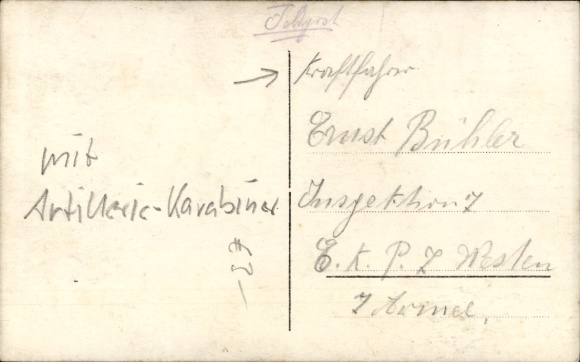 Feldpost
Kraftfahrer
Ernst Bühler
Inspektion 7
E. K. P. 7 Westen
7 Armee.
mit
Artillerie-Karabiner